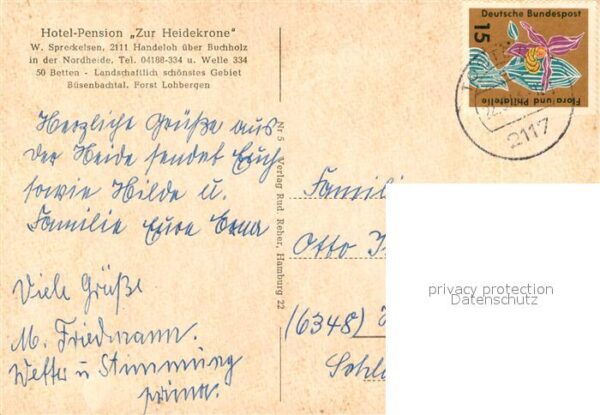 Hotel-Pension „Zur Heidekrone"
W. Spreckelsen, 2111 Handeloh über Buchholz
in der Nordheide, Tel. 04188-334 u. Welle 334
50 Betten - Landschaftlich schönstes Gebiet
Büsenbachtal, Forst Lohbergen
Herzliche Grüße aus
der Heide sendet Euch
sowie Hilde u.
Familie Eure Erna
Viele Grüße
M. Friedmann.
Wetter u Stimmung
prima.
Nr 5 Verlag Rud. Reher, Hamburg 22
Deutsche Bundespost
15
Flora und Philatelie
2117
Famili
Otto
(6348)
privacy protection
Datenschutz